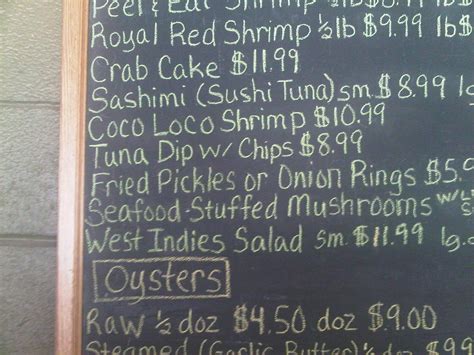 Peel & Eat Shrimp ½lb $8.99 lb$
Royal Red Shrimp ½lb $9.99 lb$
Crab Cake $11.99
Sashimi (Sushi Tuna) sm. $8.99 lg
Coco Loco Shrimp $10.99
Tuna Dip w/ Chips $8.99
Fried Pickles or Onion Rings $5.9
Seafood-Stuffed Mushrooms w/
West Indies Salad sm. $11.99 lg.
Oysters
Raw ½ doz $4.50 doz $9.00
Steamed (Garlic Butter) ½ doz $9